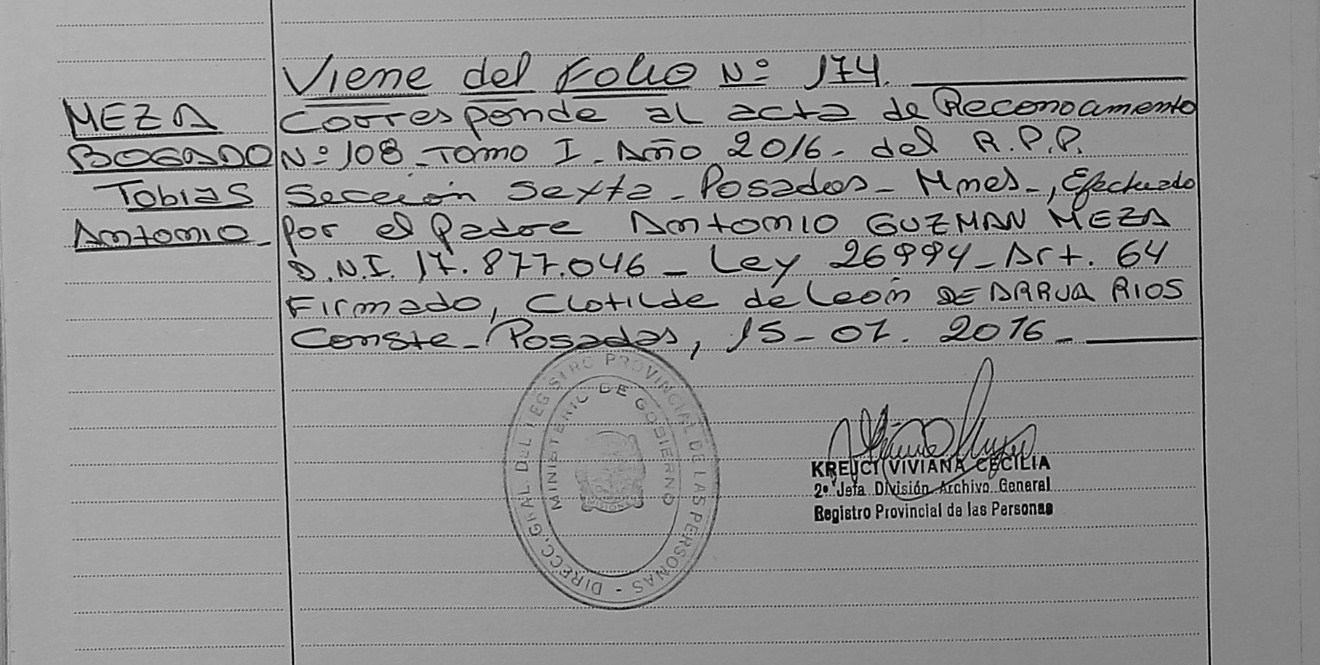 Viene del Folio Nº 174.
MEZA
BOGADO
Tobias
Antonio
Corresponde al acta de Reconocimiento
Nº 108 - Tomo I - Año 2016 - del R.P.P.
Sección Sexta - Posadas - Mnes -, Efectuado
por el padre Antonio GUZMAN MEZA
D.N.I. 17.877.046 - Ley 26994 - Art. 64
Firmado, Clotilde de León DE DARRUA RIOS
Conste - Posadas, 15 - 07. 2016 -
DIRECC. GRAL. DEL REGISTRO PROVINCIAL DE LAS PERSONAS -
MINISTERIO DE GOBIERNO
KREJCI VIVIANA CECILIA
2º Jefa División Archivo General
Registro Provincial de las Personas